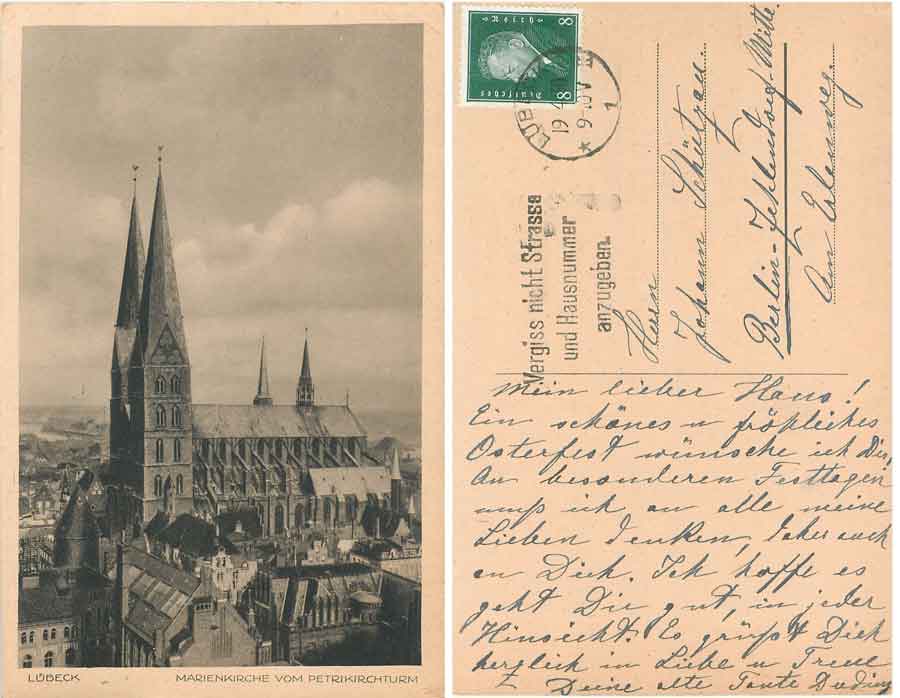 LÜBECK
MARIENKIRCHE VOM PETRIKIRCHTURM
8
8
Deutsches
Reich
LÜB
19
9-10 V
1
Vergiss nicht Strasse
und Hausnummer
anzugeben.
Herrn
Johann Schützau.
Berlin-Zehlendorf-Mitte.
Am
Mein lieber Hans!
Ein schönes u fröhliches
Osterfest wünsche ich Dir,
An besonderen Festtagen
muß ich an alle meine
Lieben denken, daher auch
an Dich. Ich hoffe es
geht Dir gut, in jeder
Hinsicht. Es grüßt Dich
herzlich in Liebe u Treue
Deine alte Tante